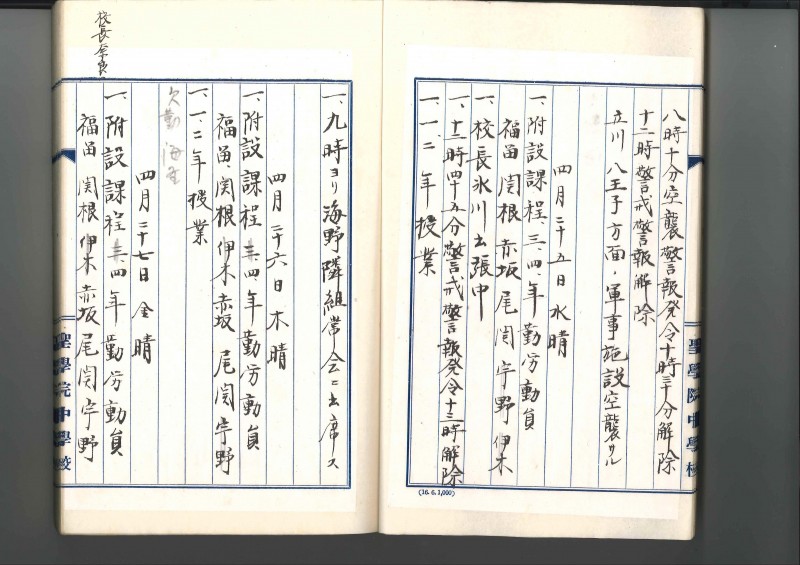 八時十分空襲警報発令十時三十分解除
十二時警戒警報解除
立川八王子方面、軍事施設空襲サル
四月二十五日水晴
一、附設課程、三、四、年勤労動員
福畄関根赤坂尾関宇野伊木
一、校長氷川出張中
一、十二時四十五分警戒警報発令十三時解除
一、一、二年授業
聖學院中學校
(16.6.1,000)
一、九時ヨリ海野隣組常会ニ出席ス
四月二十六日木晴
一、附設課程三、四、年勤労動員
福畄、関根伊木赤坂尾関宇野
一、一、二年授業
欠勤
四月二十七日金晴
一、附設課程三、四年勤労動員
福畄関根伊木赤坂尾関宇野
校長奈良
聖學院中學校